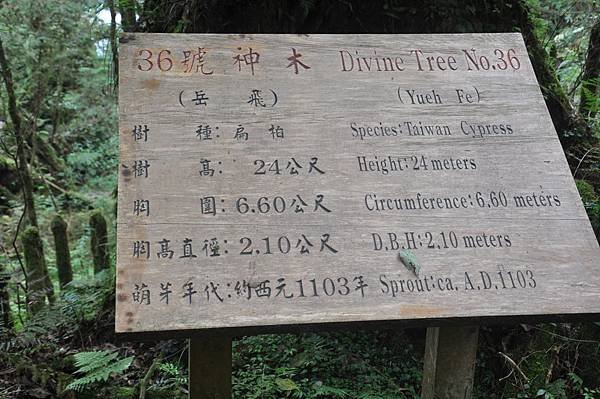 36號神木 Divine Tree No.36
(岳 飛) (Yueh Fe)
樹 種:扁柏 Species:Taiwan Cypress
樹 高: 24公尺 Height:24 meters
胸 圍:6.60公尺 Circumference:6.60 meters
胸高直徑:2.10公尺 D.B.H:2.10 meters
萌芽年代:約西元1103年 Sprout:ca. A.D.1103